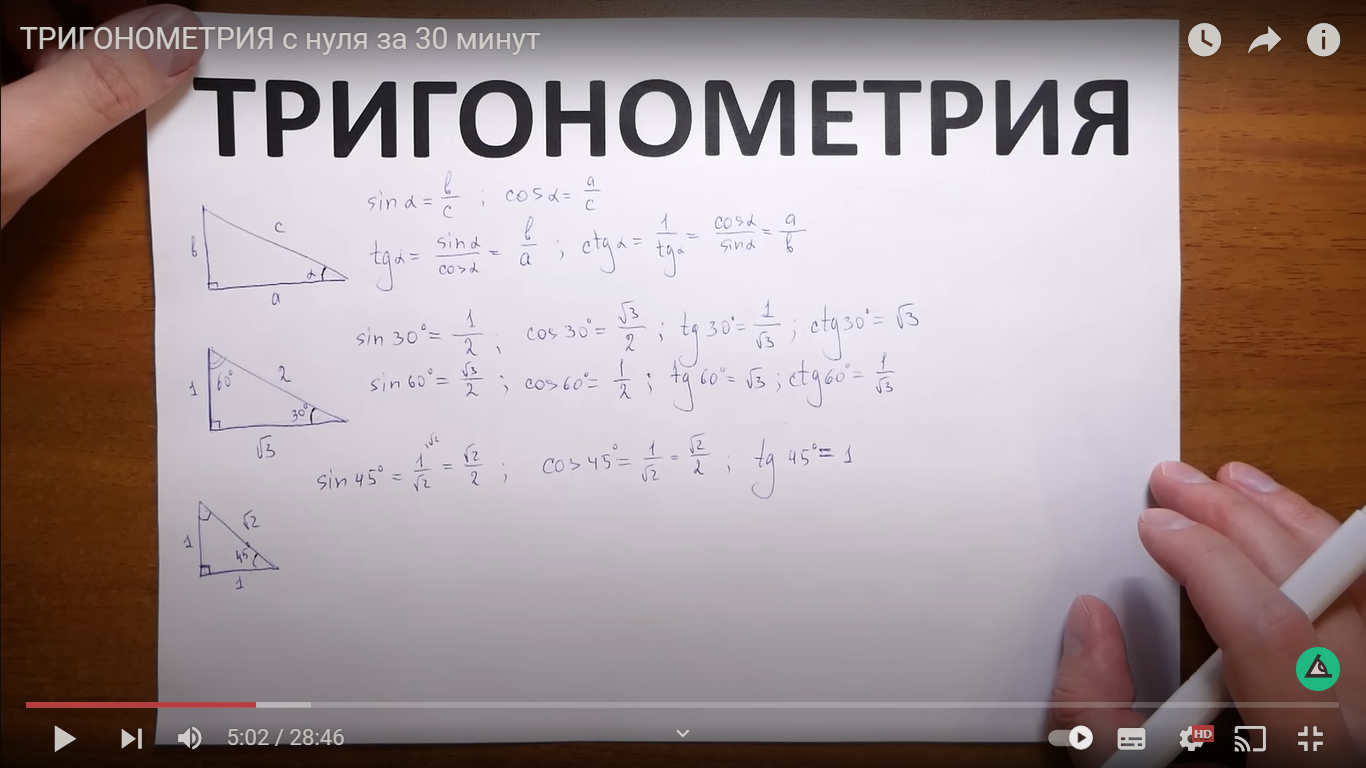 ТРИГОНОМЕТРИЯ с нуля за 30 минут
ТРИГОНОМЕТРИЯ
sin α = в/c ; cos α = a/c
tg α = sin α/cos α = в/a ; ctg α = 1/tg α = cos α/sin α = a/в
в c α a
sin 30° = 1/2 ; cos 30° = √3/2 ; tg 30° = 1/√3 ; ctg 30° = √3
sin 60° = √3/2 ; cos 60° = 1/2 ; tg 60° = √3 ; ctg 60° = 1/√3
1 60° 2 30° √3
sin 45° = 1/√2 ·√2 = √2/2 ; cos 45° = 1/√2 = √2/2 ; tg 45° = 1
1 √2 45° 1
5:02 / 28:46
HD